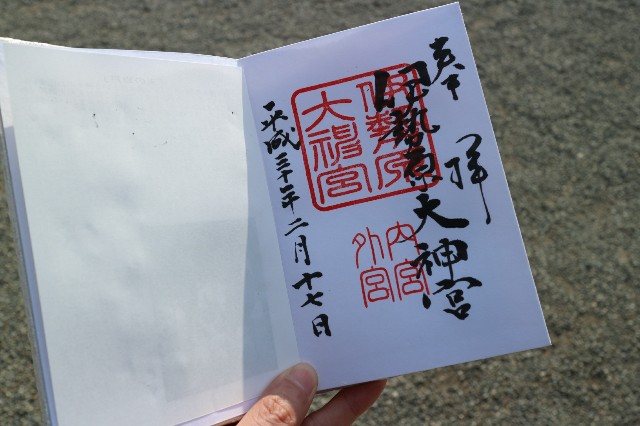 奉拝
伊勢原大神宮
平成三十年二月十七日
伊勢原
大神宮
内宮
外宮